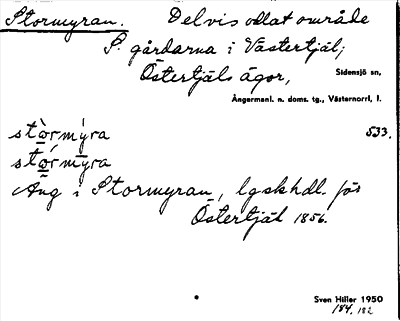 Stormyran. Delvis odlat område
S. gårdarna i Västertjäl;
Östertjäls ägor, Sidensjö sn,
Ångermanl. n. doms. tg., Västernorrl. l.
stòrmýra 533.
stórmyra
Äng i Stormyran, lgskhdl. för
Östertjäl 1856.
Sven Hiller 1950
184, 182